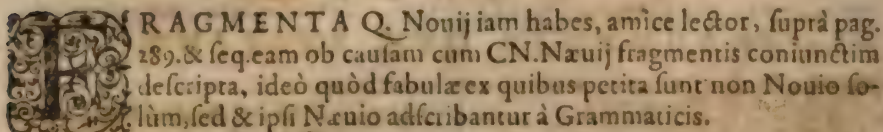 FRAGMENTA Q. Nouij iam habes, amice lector, ſuprà pag.
289.& ſeq.eam ob cauſam cum CN.Næuij fragmentis coniunctim
deſcripta, ideò quòd fabulæ ex quibus petita ſunt non Nouio ſo-
lùm,ſed & ipſi Næuio adſcribantur à Grammaticis.